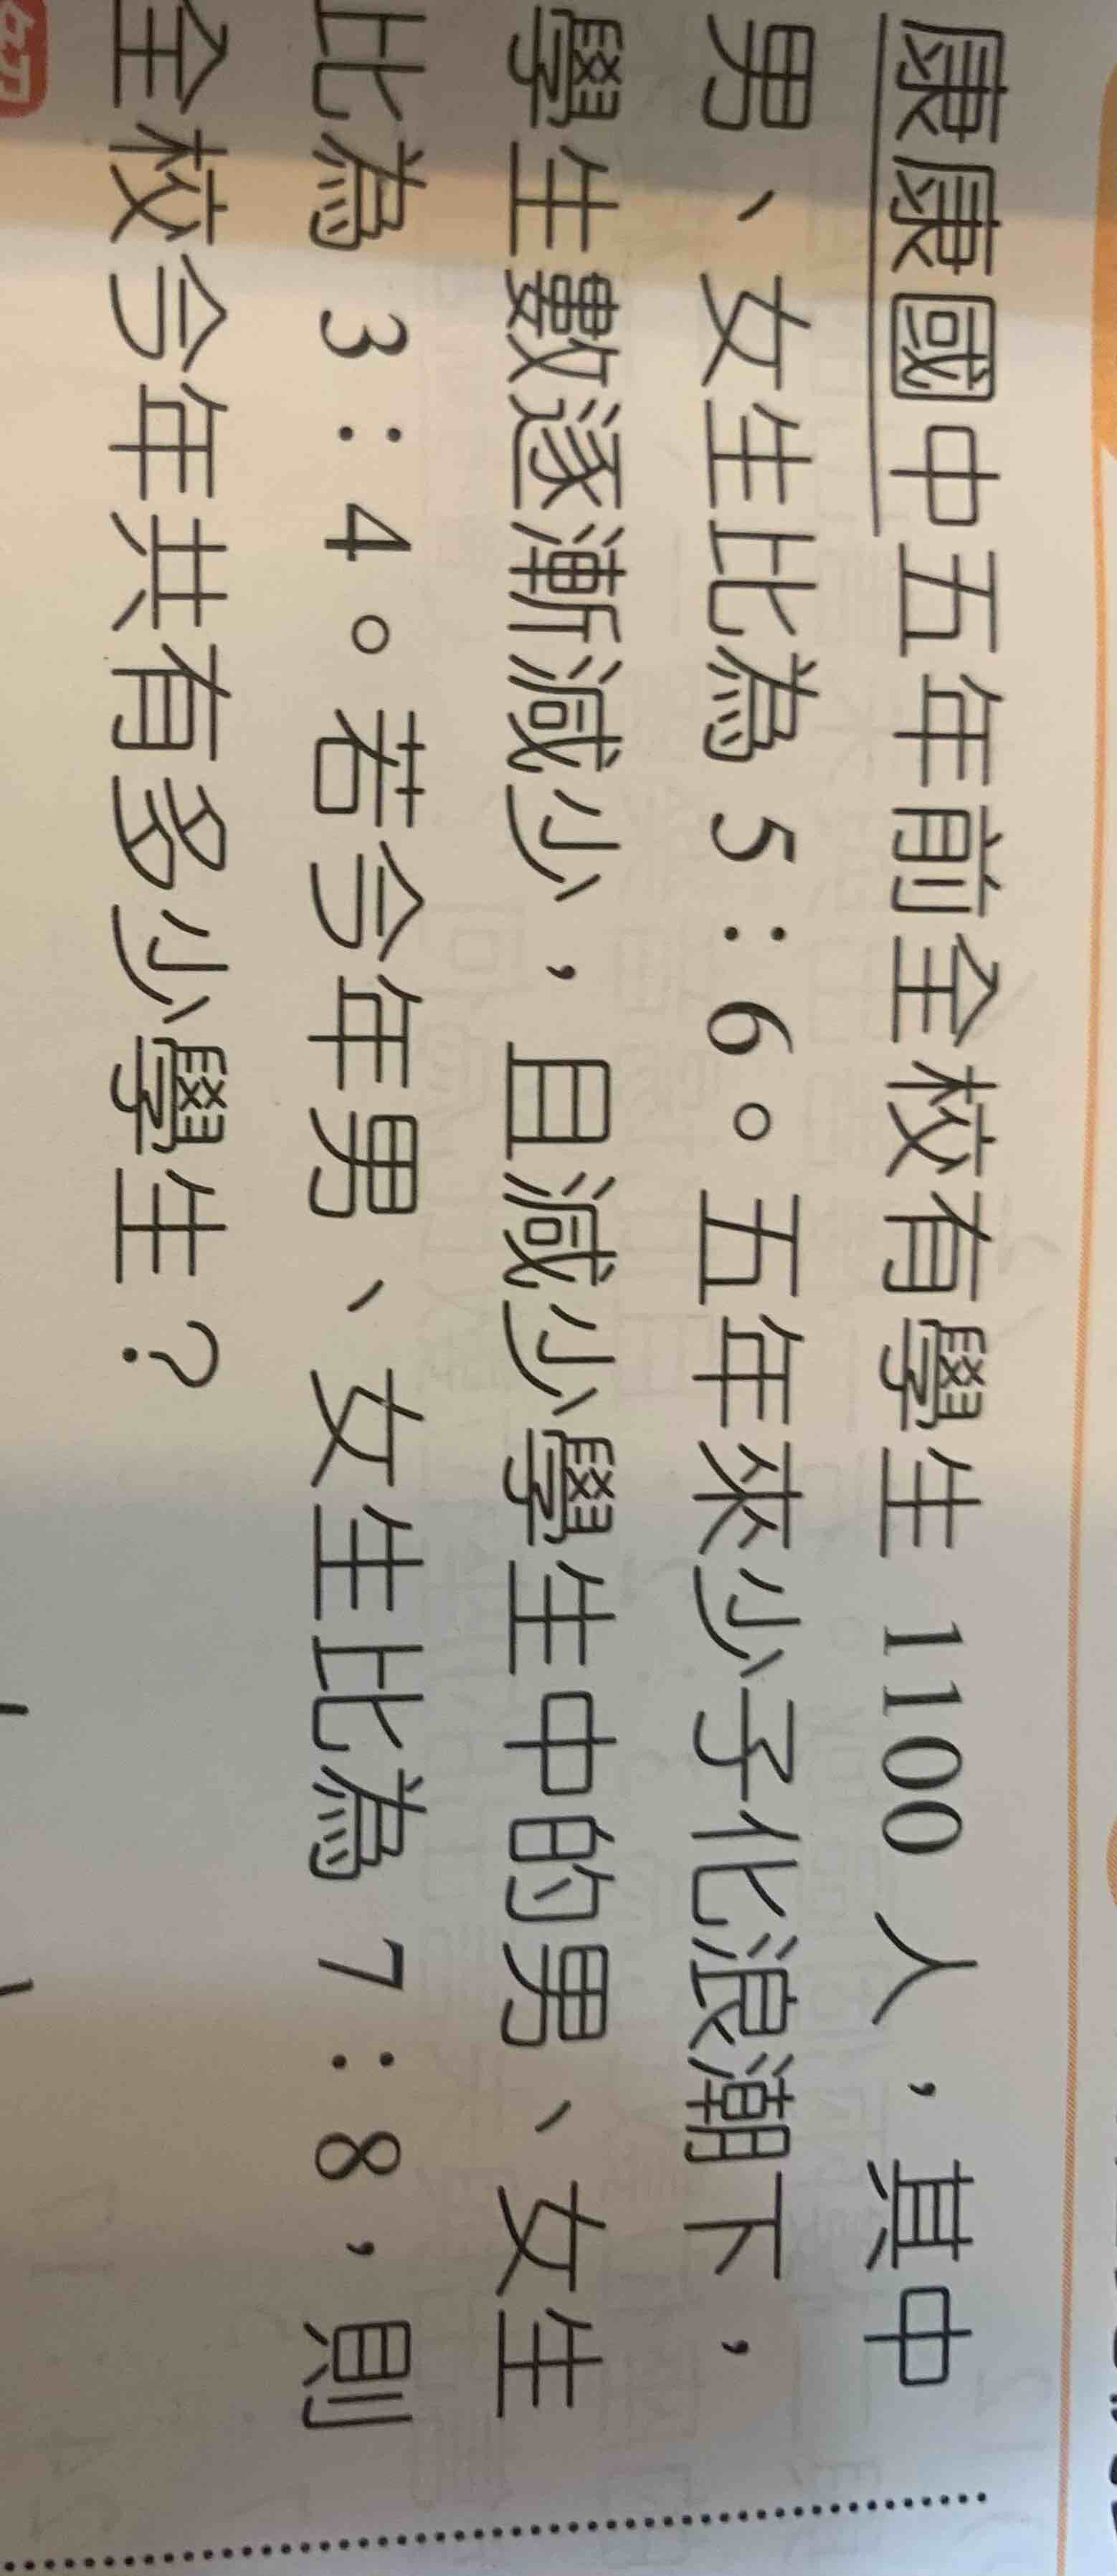 康康國中五年前全校有學生 1100 人，其中
男、女生比為 5：6。五年來少子化浪潮下，
學生數逐漸減少，且減少學生中的男、女生
比為 3：4。若今年男、女生比為 7：8，則
全校今年共有多少學生？